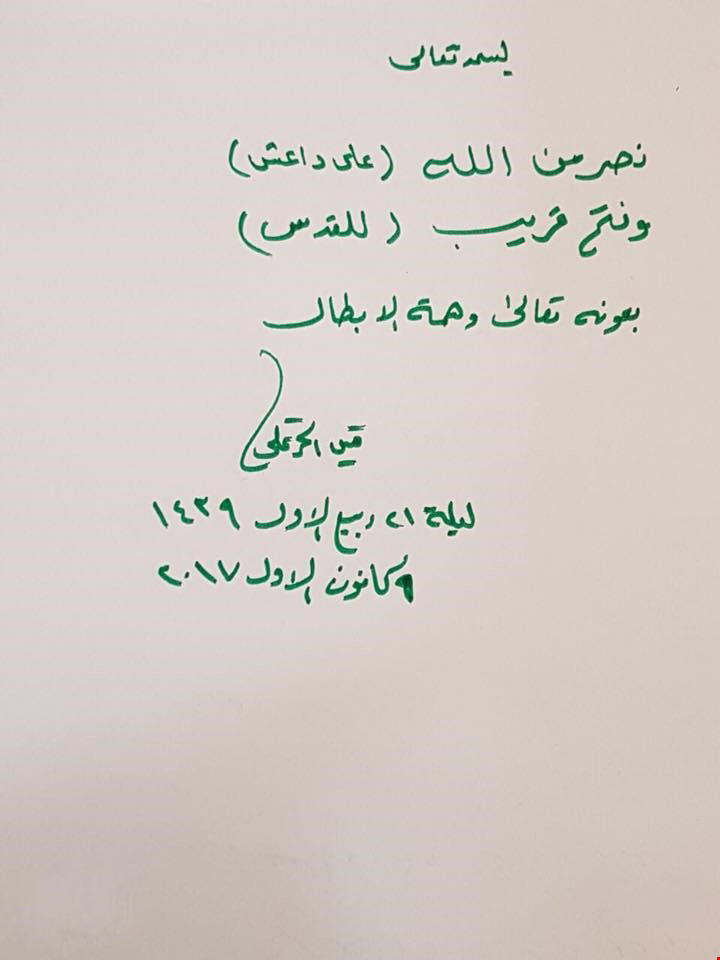 بسمه تعالى
نصر من الله (على داعش)
وفتح قريب (للقدس)
بعونه تعالى وهمة الابطال
قيس الخزعلي
ليلة ٢١ ربيع الاول ١٤٣٩
٩ كانون الاول ٢٠١٧